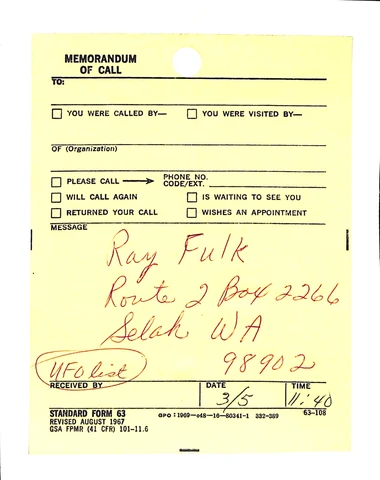 MEMORANDUM
OF CALL
TO:
YOU WERE CALLED BY— YOU WERE VISITED BY—
OF (Organization)
PLEASE CALL → PHONE NO. CODE/EXT.
WILL CALL AGAIN IS WAITING TO SEE YOU
RETURNED YOUR CALL WISHES AN APPOINTMENT
MESSAGE
Ray Fulk
Route 2 Box 2266
Selah WA
98902
UFO list
RECEIVED BY DATE TIME
3/5 11:40
STANDARD FORM 63 GPO : 1969—o48—16—80341-1 332-389 63-108
REVISED AUGUST 1967
GSA FPMR (41 CFR) 101-11.6